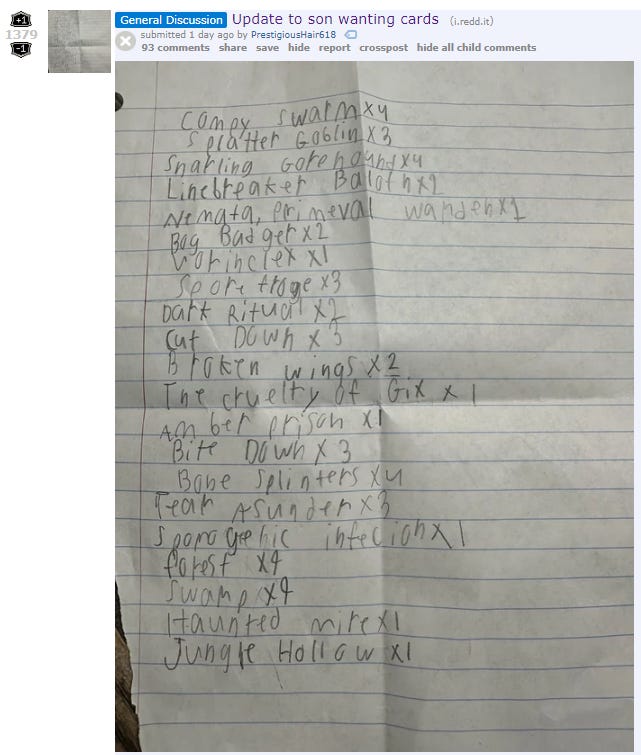 +1
1379
-1
General Discussion Update to son wanting cards (i.redd.it)
submitted 1 day ago by PrestigiousHair618
93 comments share save hide report crosspost hide all child comments
Compy swarm x4
Splatter Goblin x3
Snarling Gorehound x4
Linebreaker Baloth x2
Nemata, primeval warden x1
Bog Badger x2
Vorinclex x1
Spore froge x3
Dark Ritual x2
Cut Down x 3
Broken wings x2
The cruelty of Gix x 1
Amber prison x1
Bite Down x 3
Bone Splinters x4
Tear Asunder x3
Sporogenic infecion x1
forest x9
swamp x9
Haunted mire x1
Jungle Hollow x1